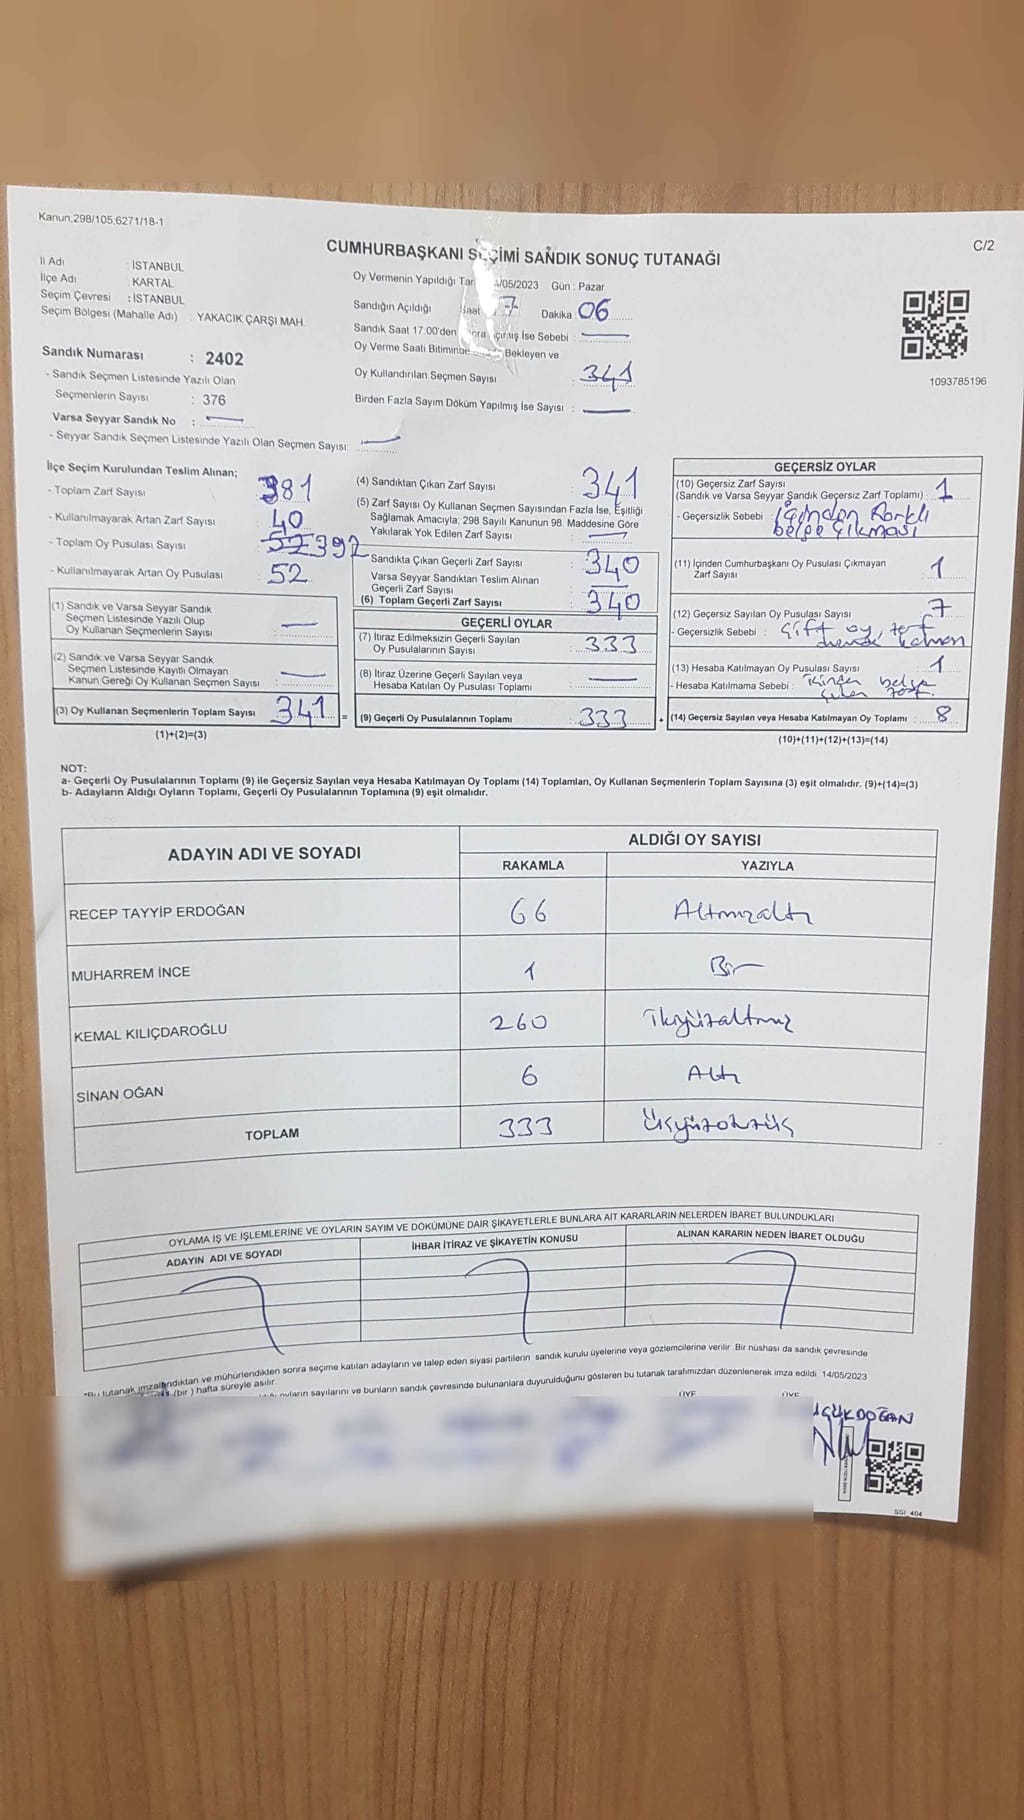 Kanun,298/105,6271/18-1
C/2
CUMHURBAŞKANI SEÇİMİ SANDIK SONUÇ TUTANAĞI
İl Adı : İSTANBUL
İlçe Adı : KARTAL
Seçim Çevresi : İSTANBUL
Seçim Bölgesi (Mahalle Adı) : YAKACIK ÇARŞI MAH.
Sandık Numarası : 2402
- Sandık Seçmen Listesinde Yazılı Olan
Seçmenlerin Sayısı : 376
Varsa Seyyar Sandık No : —
- Seyyar Sandık Seçmen Listesinde Yazılı Olan Seçmen Sayısı: —
Oy Vermenin Yapıldığı Tar 4/05/2023 Gün : Pazar
Sandığın Açıldığı Saat 7 Dakika : 06
Sandık Saat 17.00'den Açılmış İse Sebebi : —
Oy Verme Saati Bitiminde Bekleyen ve
Oy Kullandırılan Seçmen Sayısı : 341
Birden Fazla Sayım Döküm Yapılmış İse Sayısı : —
1093785196
İlçe Seçim Kurulundan Teslim Alınan;
- Toplam Zarf Sayısı : 381
- Kullanılmayarak Artan Zarf Sayısı : 40
- Toplam Oy Pusulası Sayısı : 392
- Kullanılmayarak Artan Oy Pusulası : 52
(1) Sandık ve Varsa Seyyar Sandık
Seçmen Listesinde Yazılı Olup
Oy Kullanan Seçmenlerin Sayısı : —
(2) Sandık ve Varsa Seyyar Sandık
Seçmen Listesinde Kayıtlı Olmayan
Kanun Gereği Oy Kullanan Seçmen Sayısı : —
(3) Oy Kullanan Seçmenlerin Toplam Sayısı : 341 =
(1)+(2)=(3)
(4) Sandıktan Çıkan Zarf Sayısı : 341
(5) Zarf Sayısı Oy Kullanan Seçmen Sayısından Fazla İse, Eşitliği
Sağlamak Amacıyla; 298 Sayılı Kanunun 98. Maddesine Göre
Yakılarak Yok Edilen Zarf Sayısı : —
Sandıkta Çıkan Geçerli Zarf Sayısı : 340
Varsa Seyyar Sandıktan Teslim Alınan
Geçerli Zarf Sayısı : —
(6) Toplam Geçerli Zarf Sayısı : 340
GEÇERLİ OYLAR
(7) İtiraz Edilmeksizin Geçerli Sayılan
Oy Pusulalarının Sayısı : 333
(8) İtiraz Üzerine Geçerli Sayılan veya
Hesaba Katılan Oy Pusulası Toplamı : —
(9) Geçerli Oy Pusulalarının Toplamı : 333 +
GEÇERSİZ OYLAR
(10) Geçersiz Zarf Sayısı
(Sandık ve Varsa Seyyar Sandık Geçersiz Zarf Toplamı) : 1
- Geçersizlik Sebebi : İçinden Farklı
belge çıkması
(11) İçinden Cumhurbaşkanı Oy Pusulası Çıkmayan
Zarf Sayısı : 1
(12) Geçersiz Sayılan Oy Pusulası Sayısı : 7
- Geçersizlik Sebebi : Çift oy,
(13) Hesaba Katılmayan Oy Pusulası Sayısı : 1
- Hesaba Katılmama Sebebi : içinden belge
çıkan zarf.
(14) Geçersiz Sayılan veya Hesaba Katılmayan Oy Toplamı : 8
(10)+(11)+(12)+(13)=(14)
NOT:
a- Geçerli Oy Pusulalarının Toplamı (9) ile Geçersiz Sayılan veya Hesaba Katılmayan Oy Toplamı (14) Toplamları, Oy Kullanan Seçmenlerin Toplam Sayısına (3) eşit olmalıdır. (9)+(14)=(3)
b- Adayların Aldığı Oyların Toplamı, Geçerli Oy Pusulalarının Toplamına (9) eşit olmalıdır.
ADAYIN ADI VE SOYADI
ALDIĞI OY SAYISI
RAKAMLA YAZIYLA
RECEP TAYYİP ERDOĞAN 66 Altmışaltı
MUHARREM İNCE 1 Bir
KEMAL KILIÇDAROĞLU 260 ikiyüzaltmış
SİNAN OĞAN 6 Altı
TOPLAM 333 Üçyüzotuzüç
OYLAMA İŞ VE İŞLEMLERİNE VE OYLARIN SAYIM VE DÖKÜMÜNE DAİR ŞİKAYETLERLE BUNLARA AİT KARARLARIN NELERDEN İBARET BULUNDUKLARI
ADAYIN ADI VE SOYADI İHBAR İTİRAZ VE ŞİKAYETİN KONUSU ALINAN KARARIN NEDEN İBARET OLDUĞU
*Bu tutanak imzalandıktan ve mühürlendikten sonra seçime katılan adayların ve talep eden siyasi partilerin sandık kurulu üyelerine veya gözlemcilerine verilir. Bir nüshası da sandık çevresinde
(bir) hafta süreyle asılır.
oyların sayılarını ve bunların sandık çevresinde bulunanlara duyurulduğunu gösteren bu tutanak tarafımızdan düzenlenerek imza edildi. 14/05/2023
ÜYE ÜYE
ÜÇÜKDOĞAN
SSI_404